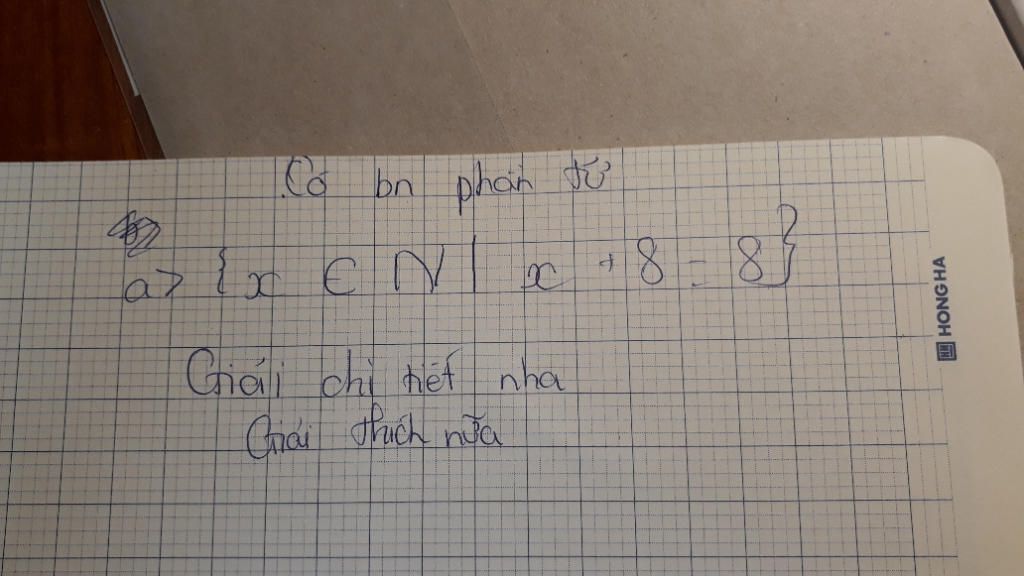 Có bn phần tử
a> {x ∈ N | x + 8 = 8}
Giải chi tiết nha
Giải thích nữa
HONG HA